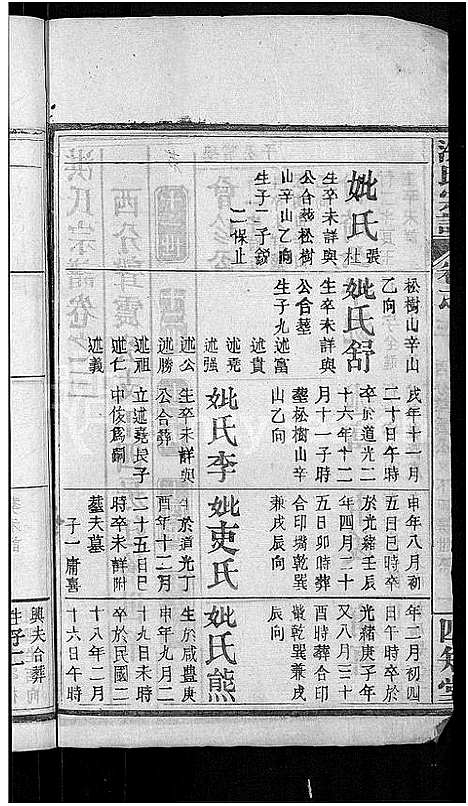 妣氏張杜
生卒未詳與
公合葬松樹
山辛山乙向
生子二子鈖
二保止
松樹山辛山
乙向
妣氏舒
生卒未詳與
公合墓
生子九述富
述貴
述堯
述強
述公
述勝
述祖
述仁
述義
戌年十一月
二十日午時
卒於道光二
十六年十二
月十一子時
塟松樹山辛
山乙向
妣氏李
生卒未詳與
公合葬
立述堯長子
中俊爲嗣
申年八月初
五日巳時卒
於光緒壬辰
年四月三十
五日卯時葬
合印塆乾巽
兼戌辰向
妣吏氏
生於道光丁
酉年十二月
二十五日巳
時卒未詳附
墓夫墓
子一庸喜
年二月初四
日午時卒於
光緒庚子年
又八月三十
酉時葬合印
塆乾巽兼戌
辰向
妣氏熊
生於咸豐庚
申年九月二
十九日未時
卒於民國二
十八年二月
十六日午時
四知堂
洪氏宗譜卷之三
興夫合葬
生子二